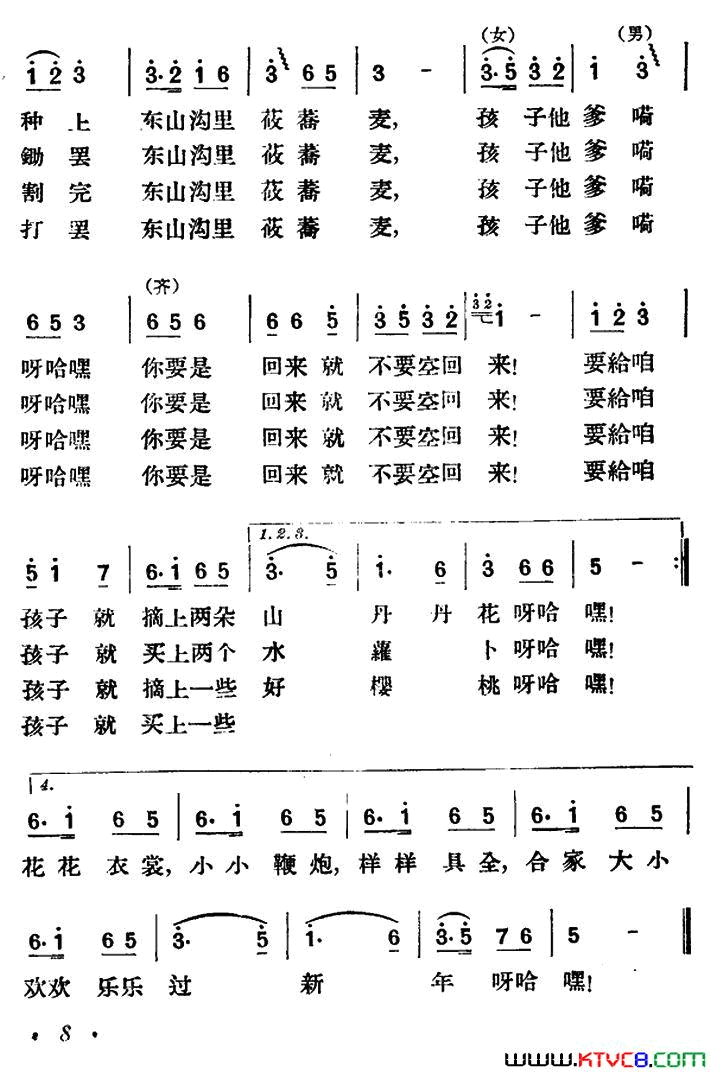 (女) (男)
1 2 3 3·2 1 6 3 6 5 3 - 3·5 3 2 1 3
种上 东山沟里 莜蕎 麦, 孩 子他 爹 嗬
鋤罢 东山沟里 莜蕎 麦, 孩 子他 爹 嗬
割完 东山沟里 莜蕎 麦, 孩 子他 爹 嗬
打罢 东山沟里 莜蕎 麦, 孩 子他 爹 嗬
(齐)
6 5 3 6 5 6 6 6 5 3 5 3 2 3 2 1 - 1 2 3
呀哈嘿 你要是 回来就 不要空回 来! 要給咱
呀哈嘿 你要是 回来就 不要空回 来! 要給咱
呀哈嘿 你要是 回来就 不要空回 来! 要給咱
呀哈嘿 你要是 回来就 不要空回 来! 要給咱
1.2.3.
5 1 7 6·1 6 5 3· 5 1· 6 3 6 6 5 - :
孩子 就 摘上两朵 山 丹 丹 花 呀哈 嘿!
孩子 就 买上两个 水 蘿 卜 呀哈 嘿!
孩子 就 摘上一些 好 樱 桃 呀哈 嘿!
孩子 就 买上一些
4.
6·1 6 5 6·1 6 5 6·1 6 5 6·1 6 5
花花 衣裳, 小小 鞭炮, 样样 具全, 合家 大小
6·1 6 5 3· 5 1· 6 3·5 7 6 5 -
欢欢 乐乐 过 新 年 呀哈 嘿!
· 8 ·
www.KTVC8.com